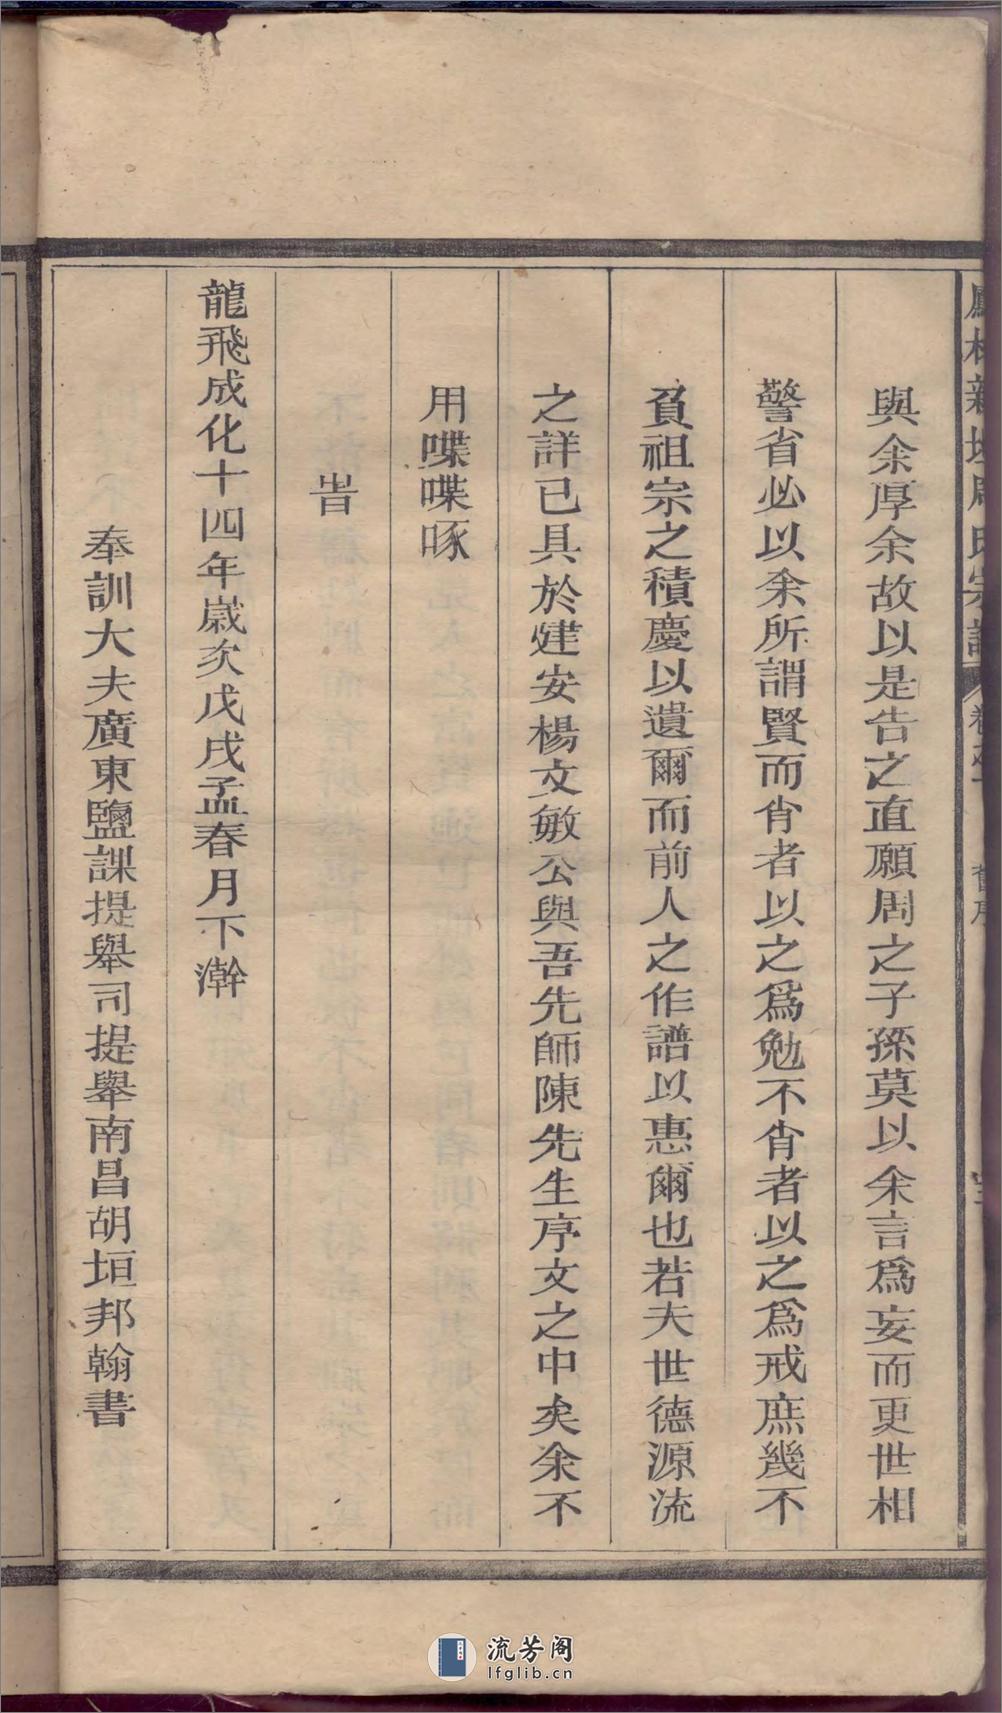 新 周氏宗譜 卷之 舊序
與余厚余故以是告之直願周之子孫莫以余言爲妄而更世相
警省必以余所謂賢而肖者以之爲勉不肖者以之爲戒庶幾不
負祖宗之積慶以遺爾而前人之作譜以惠爾也若夫世德源流
之詳已具於建安楊文敏公與吾先師陳先生序文之中矣余不
用喋喋啄
旹
龍飛成化十四年嵗次戊戌孟春月下澣
奉訓大夫廣東鹽課提舉司提舉南昌胡垣邦翰書
流芳阁
lfglib.cn